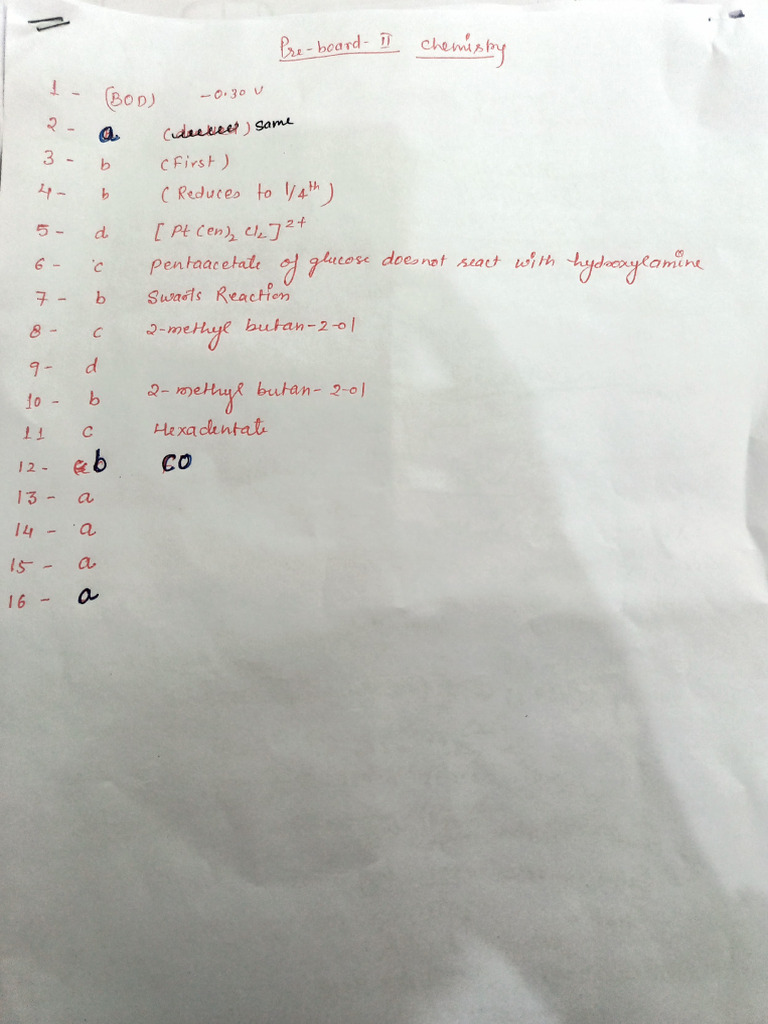 Pre-board-II Chemistry
1 - (BOD) -0.30 V
2 - a same
3 - b (First)
4 - b (Reduces to 1/4th)
5 - d [Pt(en)2Cl2]2+
6 - c pentaacetate of glucose doesnot react with hydroxylamine
7 - b Swarts Reaction
8 - c 2-methyl butan-2-ol
9 - d
10 - b 2-methyl butan-2-ol
11 c Hexadentate
12 - b CO
13 - a
14 - a
15 - a
16 - a